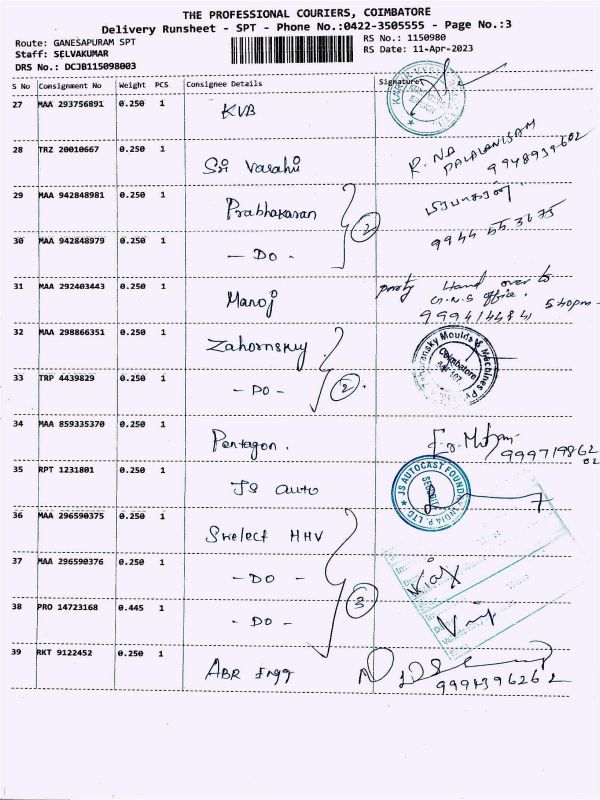 THE PROFESSIONAL COURIERS, COIMBATORE
Delivery Runsheet - SPT - Phone No.:0422-3505555 - Page No.:3
Route: GANESAPURAM SPT
RS No.: 1150980
Staff: SELVAKUMAR
RS Date: 11-Apr-2023
DRS No.: DCJB115098003
S No Consignment No Weight PCS Consignee Details Signature
27 MAA 293756891 0.250 1 KVB
28 TRZ 20010667 0.250 1 Sri Varahi R. NA
29 MAA 942848981 0.250 1 Prabhakaran பிரபாகரன்
30 MAA 942848979 0.250 1 - DO - 2 9944 55 3675
31 MAA 292403443 0.250 1 Manoj party Hand over to
G.N.S office. 5.40pm
32 MAA 298866351 0.250 1 Zahornsky Zahoransky Moulds & Machines
Coimbatore
33 TRP 4439829 0.250 1 - DO - 2
34 MAA 859335370 0.250 1 Pentagon.
35 RPT 1231801 0.250 1 JS auto JS AUTOCAST FOUNDRY INDIA P. LTD.
SECURITY
36 MAA 296590375 0.250 1 Swelect HHV
37 MAA 296590376 0.250 1 - DO - 3
38 PRO 14723168 0.445 1 - DO -
39 RKT 9122452 0.250 1 ABR Engg